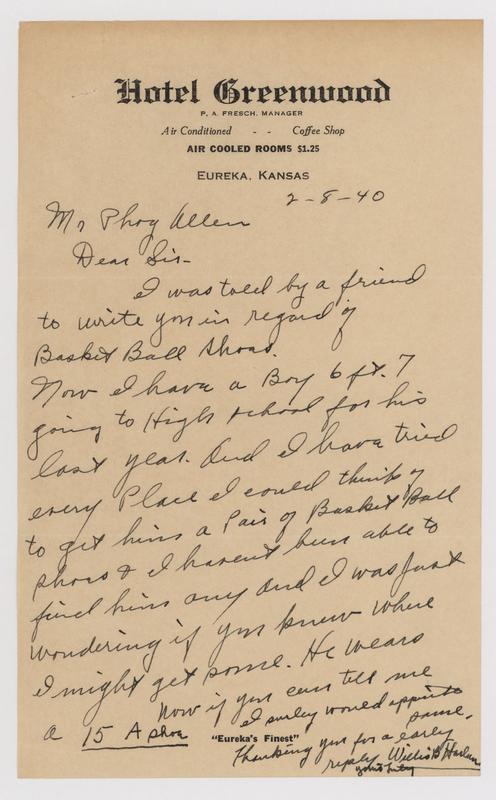 Hotel Greenwood
P. A. FRESCH, MANAGER
Air Conditioned - - Coffee Shop
AIR COOLED ROOMS $1.25
EUREKA, KANSAS
2-8-40
Mr Phog Allen
Dear Sir-
I was told by a friend
to write you in regard of
Basket Ball Shoes.
Now I have a Boy 6 ft. 7
going to High school for his
last year. And I have tried
every Place I could think of
to get him a Pair of Basket Ball
shoes & I haven't been able to
find him any And I was Just
wondering if you knew where
I might get some. He wears
a 15 A shoe
Now if you can tell me
I surley would
same.
Thanking you for a early
reply
Willis
"Eureka's Finest"